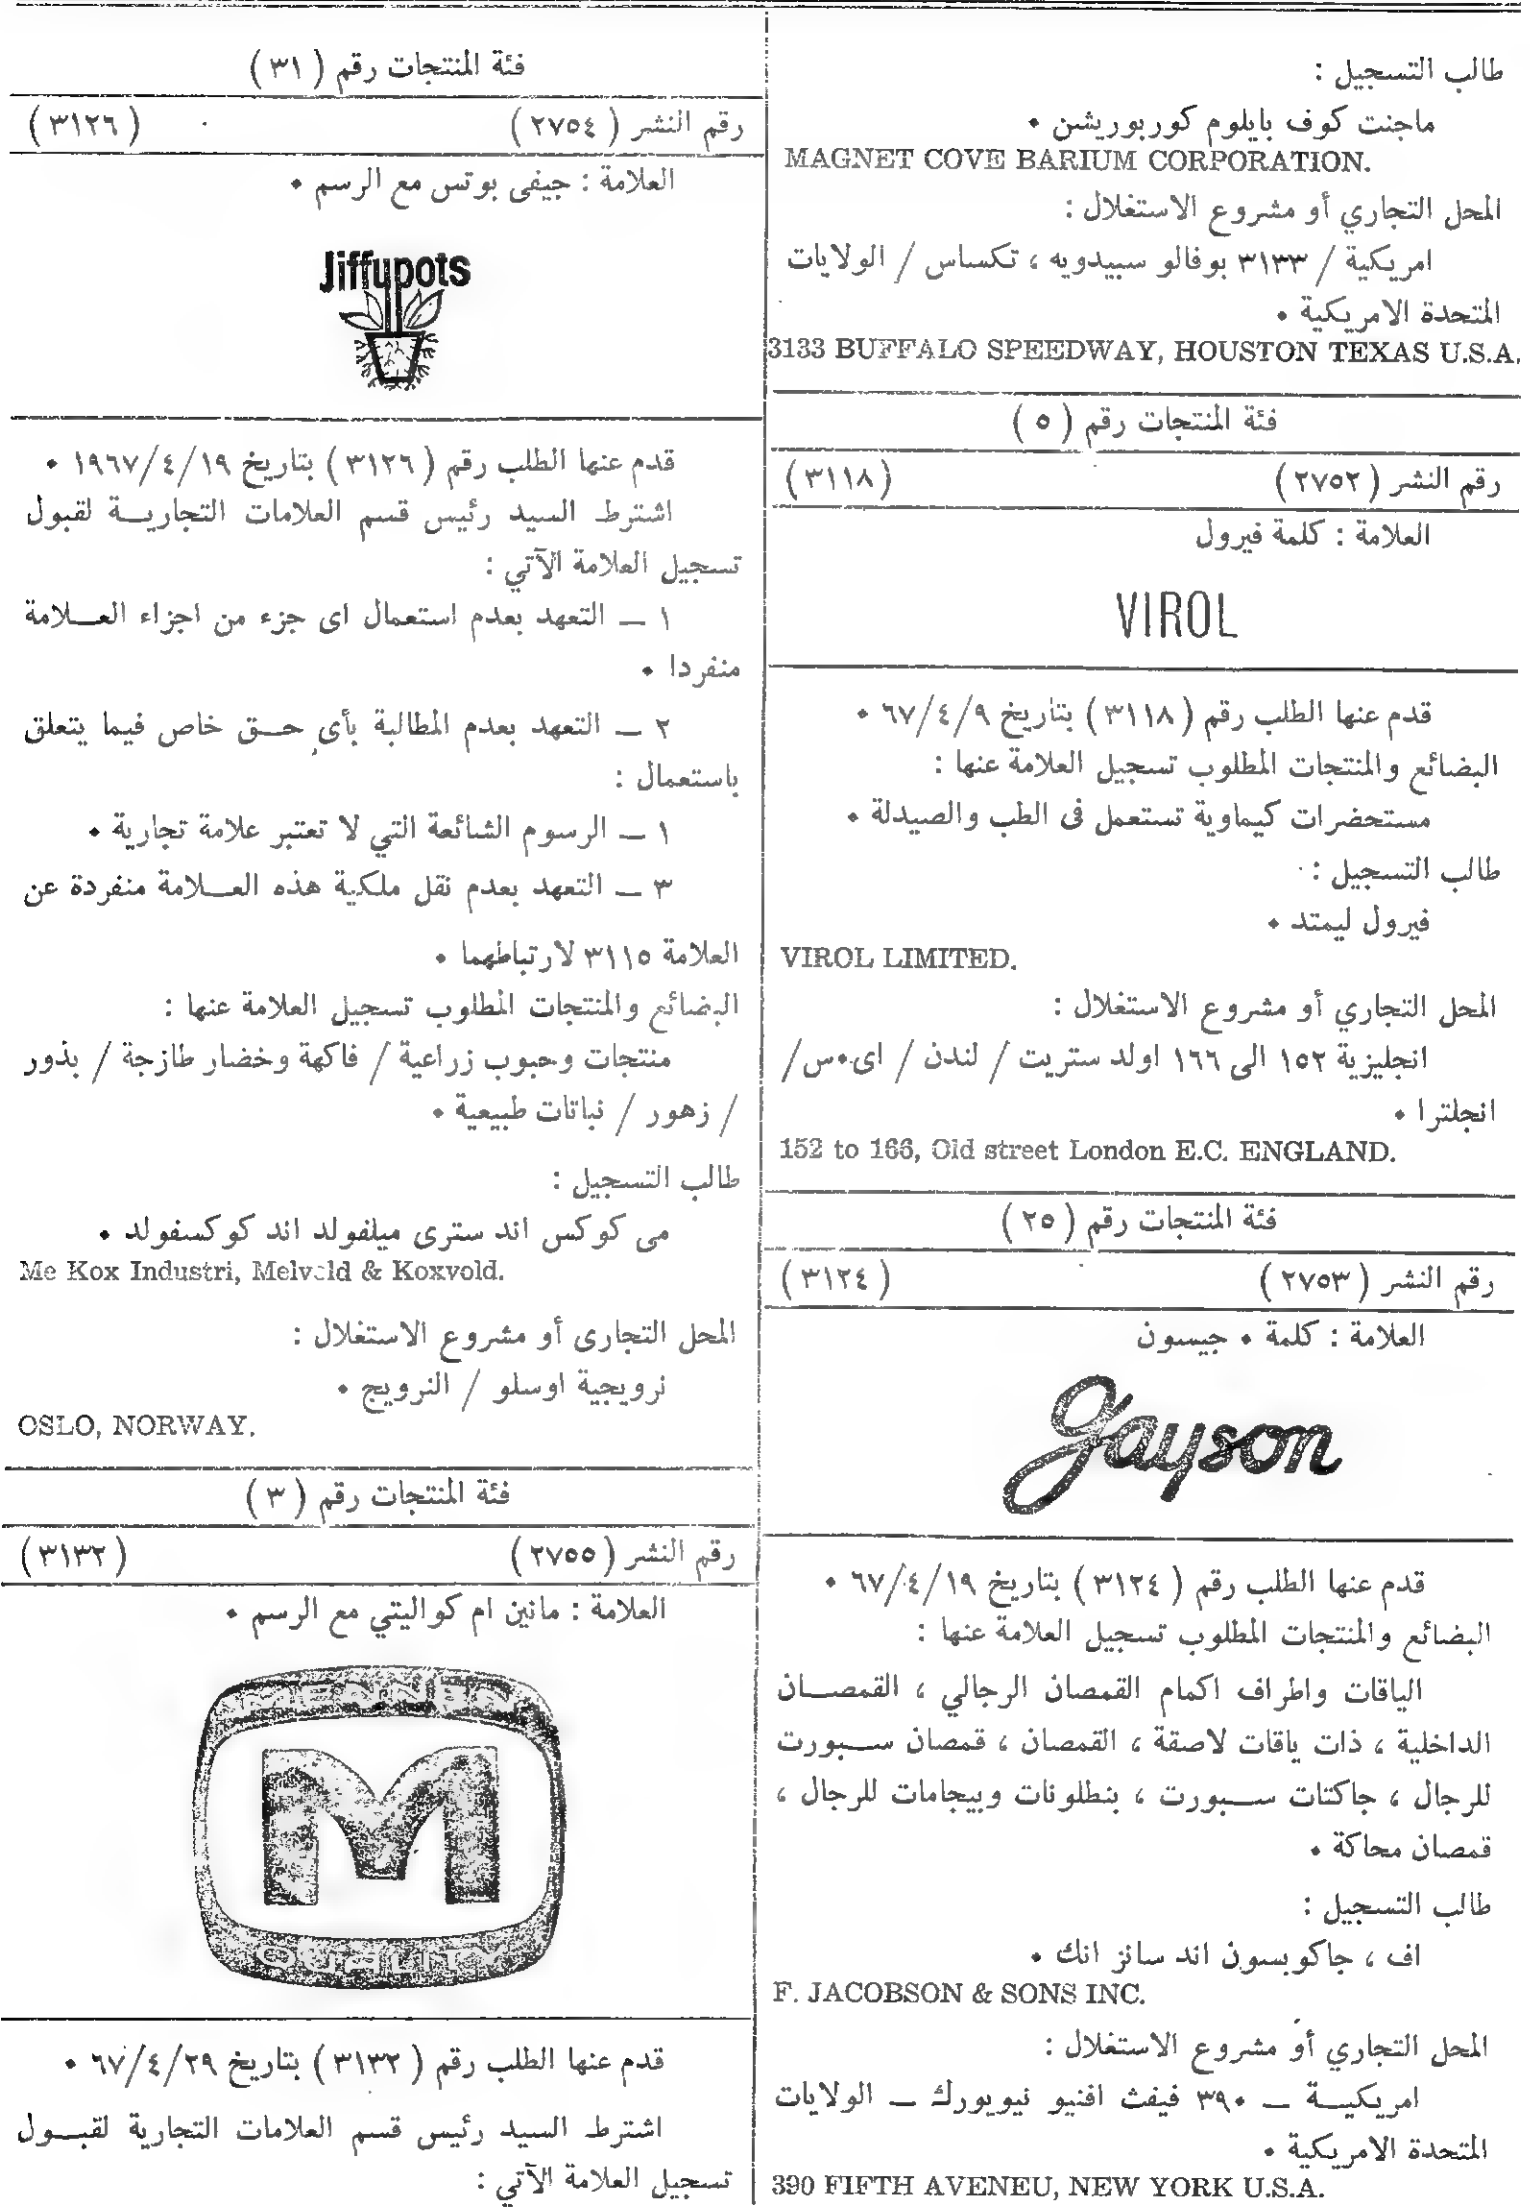 طالب التسجيل :
ماجنت كوف بايلوم كوربوريشن •
MAGNET COVE BARIUM CORPORATION.
المحل التجاري أو مشروع الاستغلال :
امريكية / ٣١٣٣ بوفالو سبيدويه ، تكساس / الولايات
المتحدة الامريكية •
3133 BUFFALO SPEEDWAY, HOUSTON TEXAS U.S.A.
فئة المنتجات رقم ( ٥ )
رقم النشر ( ٢٧٥٢ ) ( ٣١١٨ )
العلامة : كلمة فيرول
VIROL
قدم عنها الطلب رقم ( ٣١١٨ ) بتاريخ ٦٧/٤/٩ •
البضائع والمنتجات المطلوب تسجيل العلامة عنها :
مستحضرات كيماوية تستعمل فى الطب والصيدلة •
طالب التسجيل :
فيرول ليمتد •
VIROL LIMITED.
المحل التجاري أو مشروع الاستغلال :
انجليزية ١٥٢ الى ١٦٦ اولد ستريت / لندن / اى•س/
انجلترا •
152 to 166, Old street London E.C. ENGLAND.
فئة المنتجات رقم ( ٢٥ )
رقم النشر ( ٢٧٥٣ ) ( ٣١٢٤ )
العلامة : كلمة • جيسون
Jayson
قدم عنها الطلب رقم ( ٣١٢٤ ) بتاريخ ٦٧/٤/١٩ •
البضائع والمنتجات المطلوب تسجيل العلامة عنها :
الياقات واطراف اكمام القمصان الرجالي ، القمصان
الداخلية ، ذات ياقات لاصقة ، القمصان ، قمصان سبورت
للرجال ، جاكتات سبورت ، بنطلونات وبيجامات للرجال ،
قمصان محاكة •
طالب التسجيل :
اف ، جاكوبسون اند سانز انك •
F. JACOBSON & SONS INC.
المحل التجاري أو مشروع الاستغلال :
امريكية ــ ٣٩٠ فيفث افنيو نيويورك ــ الولايات
المتحدة الامريكية •
390 FIFTH AVENEU, NEW YORK U.S.A.
فئة المنتجات رقم ( ٣١ )
رقم النشر ( ٢٧٥٤ ) ( ٣١٢٦ )
العلامة : جيفى بوتس مع الرسم •
Jiffypots
قدم عنها الطلب رقم ( ٣١٢٦ ) بتاريخ ١٩٦٧/٤/١٩ •
اشترط السيد رئيس قسم العلامات التجارية لقبول
تسجيل العلامة الآتي :
١ ــ التعهد بعدم استعمال اى جزء من اجزاء العلامة
منفردا •
٢ ــ التعهد بعدم المطالبة بأي حق خاص فيما يتعلق
باستعمال :
١ ــ الرسوم الشائعة التي لا تعتبر علامة تجارية •
٣ ــ التعهد بعدم نقل ملكية هذه العلامة منفردة عن
العلامة ٣١١٥ لارتباطهما •
البضائع والمنتجات المطلوب تسجيل العلامة عنها :
منتجات وحبوب زراعية / فاكهة وخضار طازجة / بذور
/ زهور / نباتات طبيعية •
طالب التسجيل :
مى كوكس اند سترى ميلفولد اند كوكسفولد •
Me Kox Industri, Melvold & Koxvold.
المحل التجارى أو مشروع الاستغلال :
نرويجية اوسلو / النرويج •
OSLO, NORWAY.
فئة المنتجات رقم ( ٣ )
رقم النشر ( ٢٧٥٥ ) ( ٣١٣٢ )
العلامة : مانين ام كواليتي مع الرسم •
M
QUALITY
قدم عنها الطلب رقم ( ٣١٣٢ ) بتاريخ ٦٧/٤/٢٩ •
اشترط السيد رئيس قسم العلامات التجارية لقبول
تسجيل العلامة الآتي :